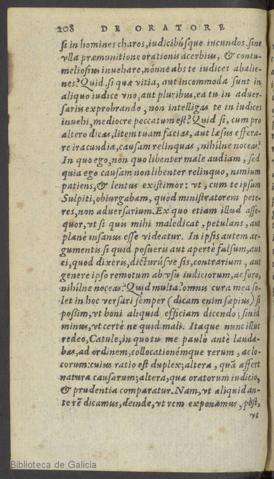 208 DE ORATORE
si in homines charos, iudicibúsque iucundos. sine
ulla præmunitione orationis acerbius, & contu-
meliosius inuehare, nónne abs te iudices abalie-
nes? Quid. si quæ vitia, aut incommoda sunt in
aliquo iudice vno, aut pluribus, ea tu in aduer-
sariis exprobrando, non intelligas te in iudices
inuehi, mediocre peccatum est? Quid si, cum pro
altero dicas, litem tuam facias, aut læsus efferá-
re iracundia, causam relinquas, nihilne noceas?
In quo ego, non quo libenter male audiam, sed
quia ego causam non libenter relinquo, nimium
patiens, & lentus existimor: vt, cum te ipsum
Sulpiti, obiurgabam, quòd ministratorem pete-
res, non aduersarium. Ex quo etiam illud asse-
quor, vt si quis mihi maledicat, petulans, aut
planè insanus esse videatur. In ipsis autem ar-
gumentis si quid posueris aut apertè falsum, aut
ei, quod dixeris, dicturúsve sis, contrarium, aut
genere ipso remotum ab vsu iudiciorum, ac foro,
nihilne noceas? Quid multa? omnis cura mea so-
let in hoc versari semper (dicam enim sæpius) si
possim, vt boni aliquid efficiam dicendo: sin id
minus, vt certè ne quid mali. Itaque nunc illuc
redeo, Catule, in quo tu me paulò antè lauda-
bas, ad ordinem, collocationémque rerum, ac lo-
corum: cuius ratio est duplex; altera, quã affert
natura causarum; altera, quæ oratorum iudicio,
& prudentia comparatur. Nam, vt aliquid an-
te rẽ dicamus, deinde, vt rem exponamus, pòst,
vt
Biblioteca de Galicia